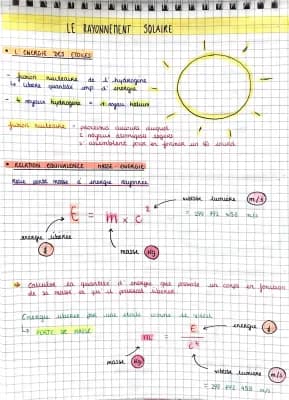 LE RAYONNEMENT SOLAIRE
L'ENERGIE DES ETOILES
- fusion nucléaire de l'hydrogène
le libère quantité imp d'énergie
- 4 noyaux hydrogène = 1 noyau helium
fusion nucléaire = processus au cours duquel
2 noyaux atomiques légers
s'assemblent pour en former un lourd
RELATION EQUIVALENCE MASSE-ENERGIE
relie perte masse à énergie rayonnée
vitesse lumière m/s
= 299 792 458 m/s
E = m × c²
énergie libérée
J
masse Kg
→ Calculer la quantité d'énergie que possède un corps en fonction
de sa masse et qu'il pourrait libérer.
Energie libérée par une étoile comme le soleil
↳ PERTE DE MASSE
m = E / c²
énergie J
masse Kg
vitesse lumière m/s
= 299 792 458 m/s